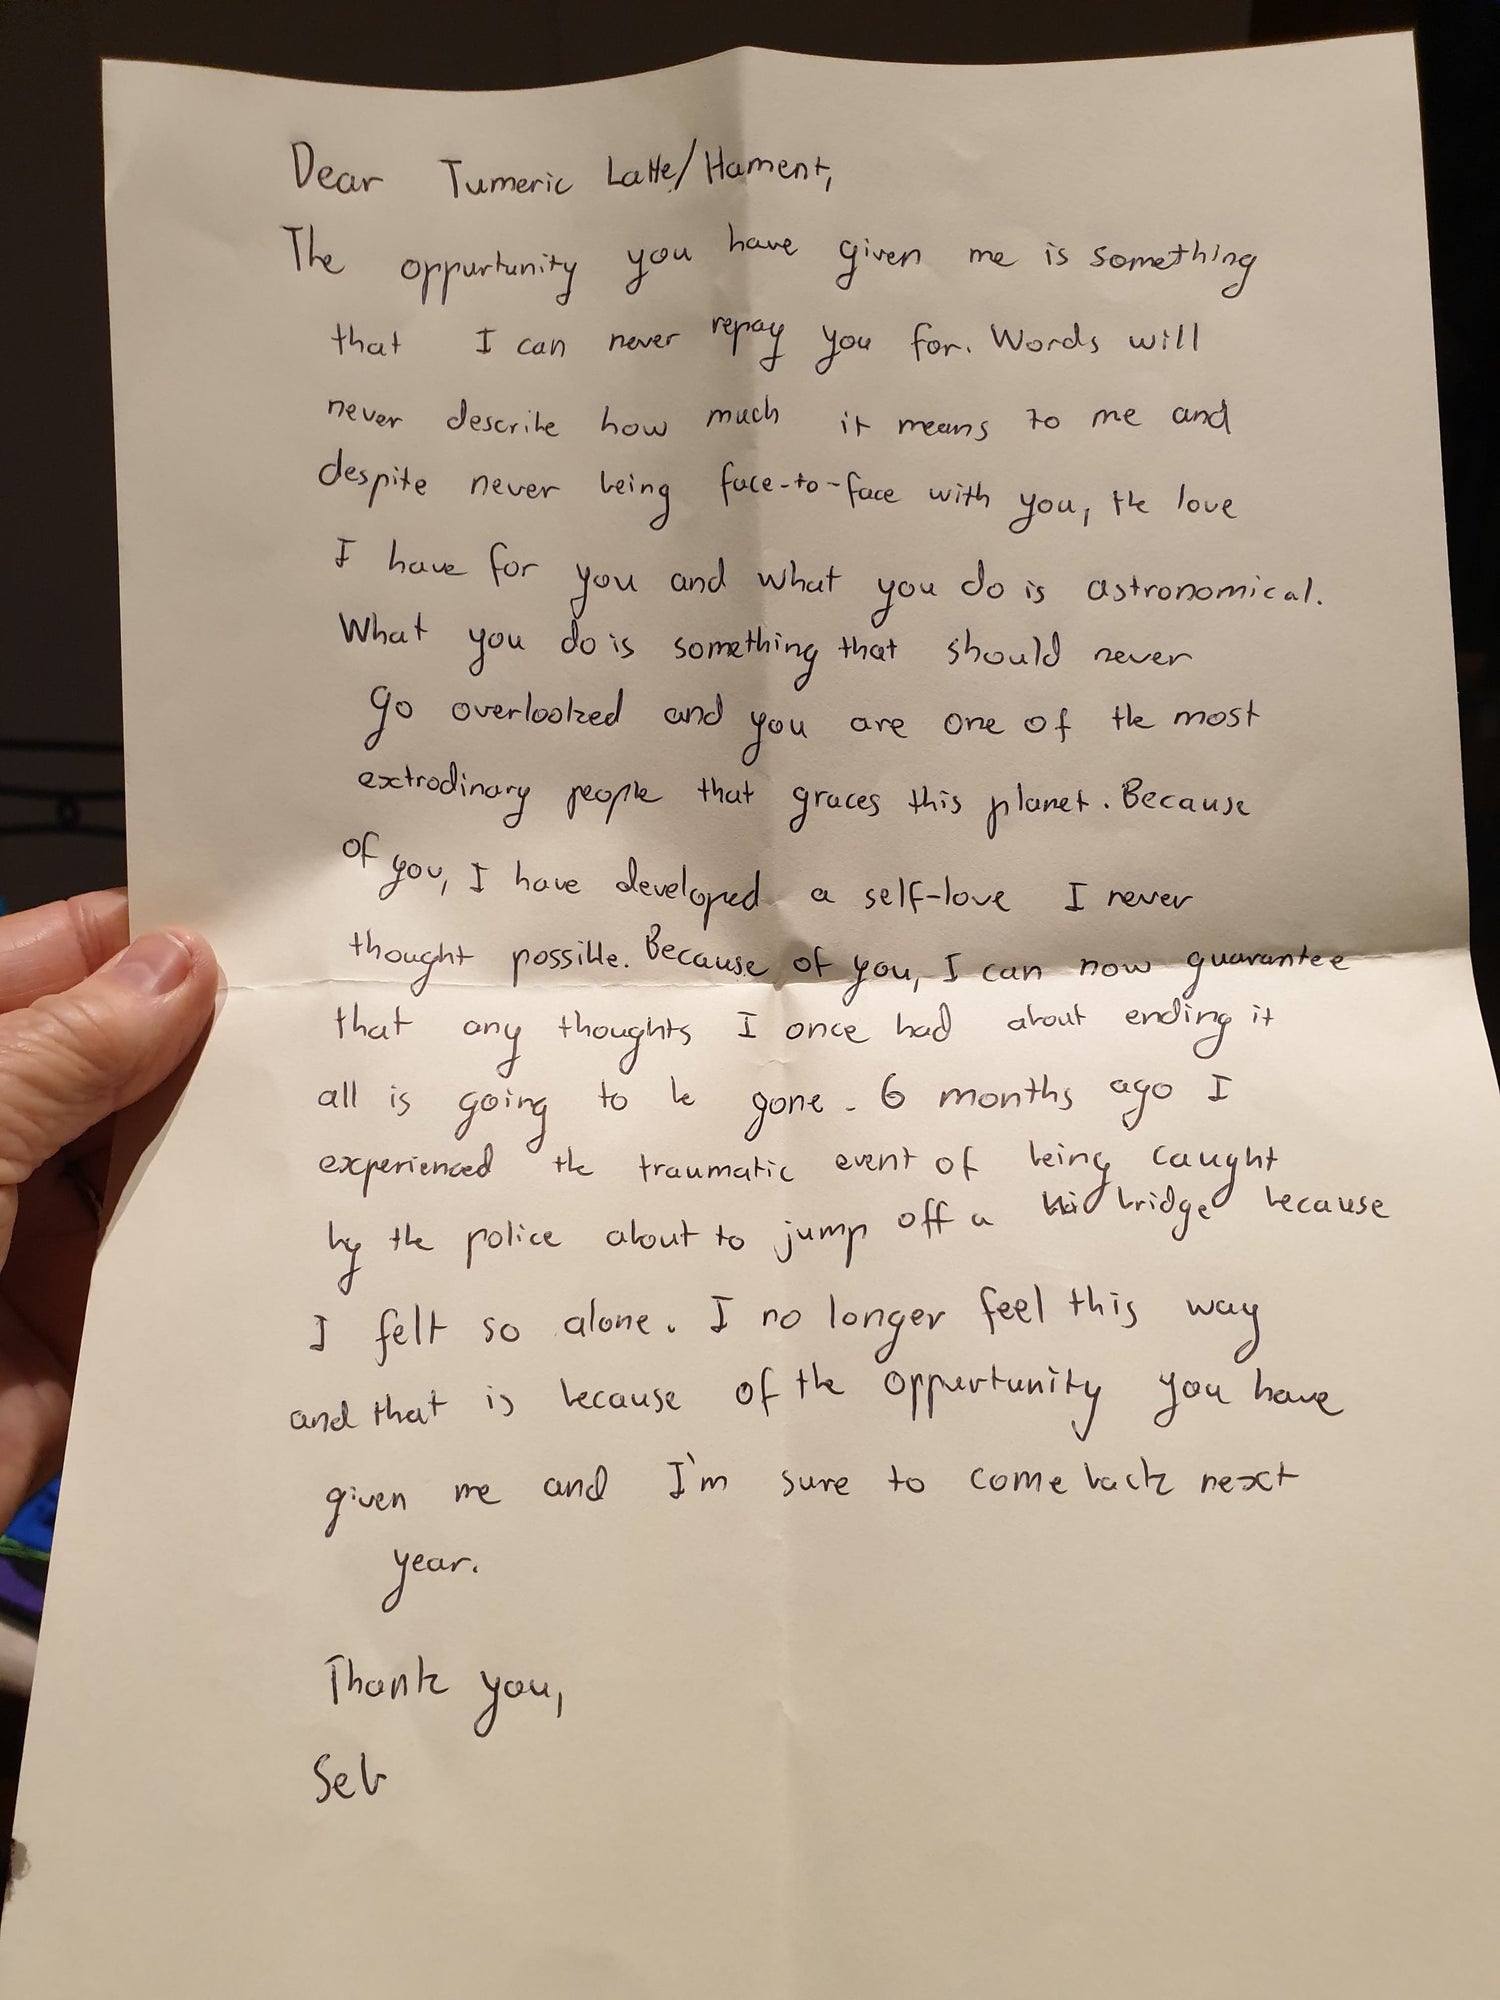 Dear Tumeric Latte/Hament,
The oppurtunity you have given me is something
that I can never repay you for. Words will
never describe how much it means to me and
despite never being face-to-face with you, the love
I have for you and what you do is astronomical.
What you do is something that should never
go overlooked and you are one of the most
extrodinary people that graces this planet. Because
of you, I have developed a self-love I never
thought possible. Because of you, I can now guarantee
that any thoughts I once had about ending it
all is going to be gone. 6 months ago I
experienced the traumatic event of being caught
by the police about to jump off a bridge because
I felt so alone. I no longer feel this way
and that is because of the oppurtunity you have
given me and I'm sure to come back next
year.
Thank you,
Seb